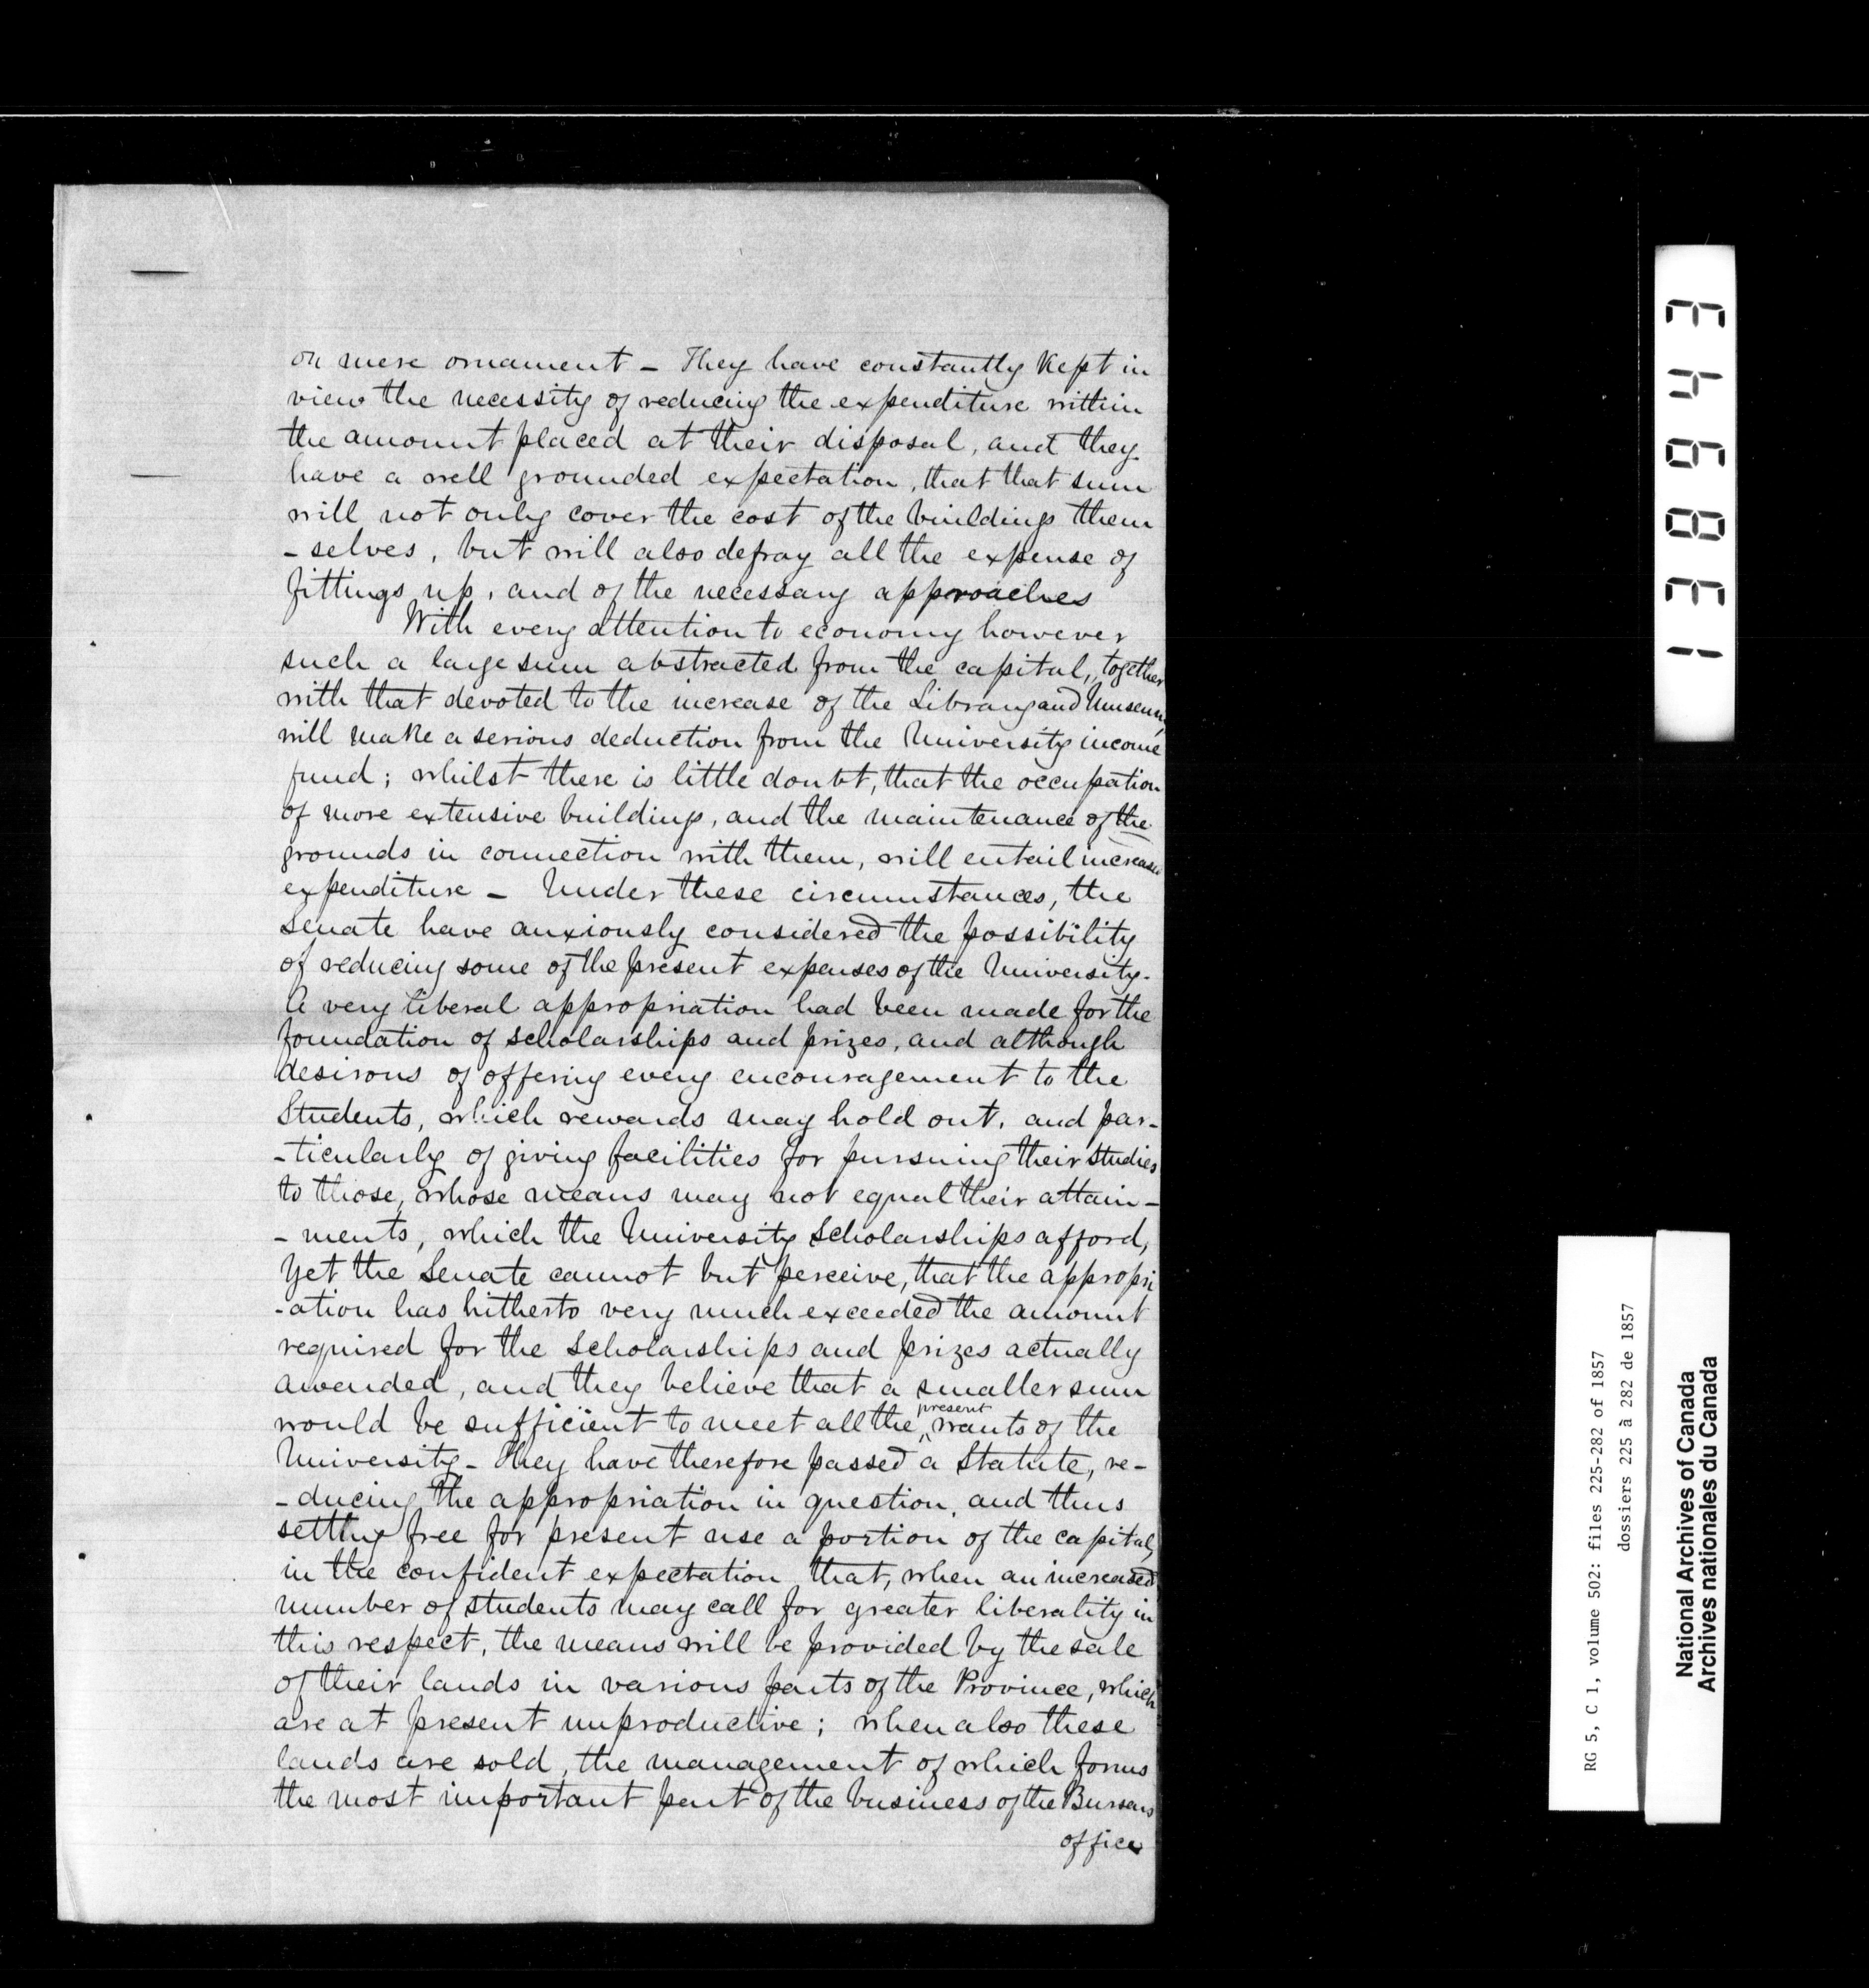 on mere ornament – They have constantly Kept in
view the necessity of reducing the expenditure within
the amount placed at their disposal, and they
have a well grounded expectation, that that sum
will not only cover the cost of the buildings them
- selves, but will also defray all the expense of
fittings up, and of the necessary approaches
With every attention to economy however
such a large sum abstracted from the capital, together
with that devoted to the increase of the Library and Museum,
will make a serious deduction from the University income
fund; whilst there is little doubt, that the occupation
of more extensive buildings, and the maintenance of the
grounds in connection with them, will entail increased
expenditure – Under these circumstances, the
Senate have anxiously considered the possibility
of reducing some of the present expenses of the University.
A very liberal appropriation had been made for the
foundation of scholarships and prizes, and although
desirous of offering every encouragement to the
Students, which rewards may hold out, and par-
-ticularly of giving facilities for pursuing their studies
to those, whose means may not equal their attain-
- ments, which the University Scholarships afford,
Yet the Senate cannot but perceive, that the appropri
-ation has hitherto very much exceeded the amount
required for the scholarships and prizes actually
awarded, and they believe that a smaller sum
would be sufficient to meet all the present wants of the
University – They have therefore passed a Statute, re-
-ducing the appropriation in question, and thus
setting free for present use a portion of the capital,
in the confident expectation that, when an increased
number of students may call for greater liberality in
this respect, the means will be provided by the sale
of their lands in various parts of the Province, which
are at present unproductive; when also these
lands are sold, the management of which forms
the most important part of the business of the Bursars
office
138943
RG 5, C 1, volume 502: files 225-282 of 1857
dossiers 225 à 282 de 1857
National Archives of Canada
Archives nationales du Canada